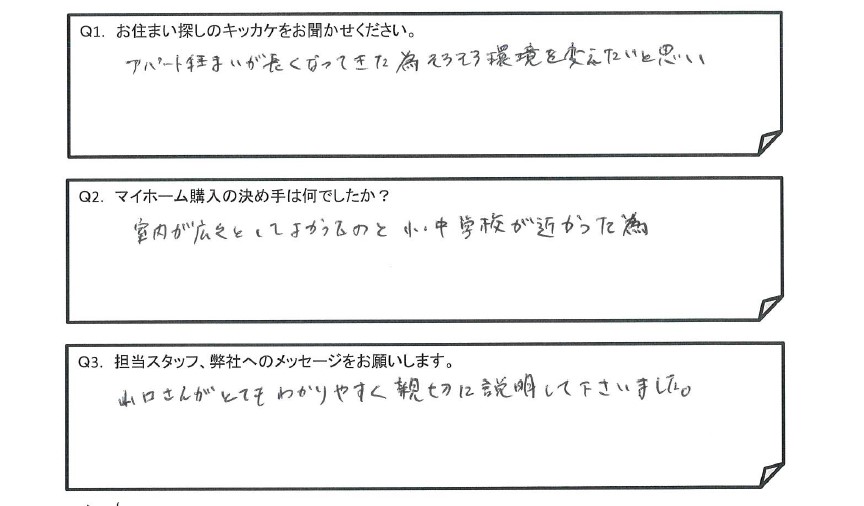 Q1. お住まい探しのキッカケをお聞かせください。
アパート住まいが長くなってきた為そろそろ環境を変えたいと思い
Q2. マイホーム購入の決め手は何でしたか？
室内が広々としてよかったのと小・中学校が近かった為
Q3. 担当スタッフ、弊社へのメッセージをお願いします。
山口さんがとてもわかりやすく親切に説明して下さいました。